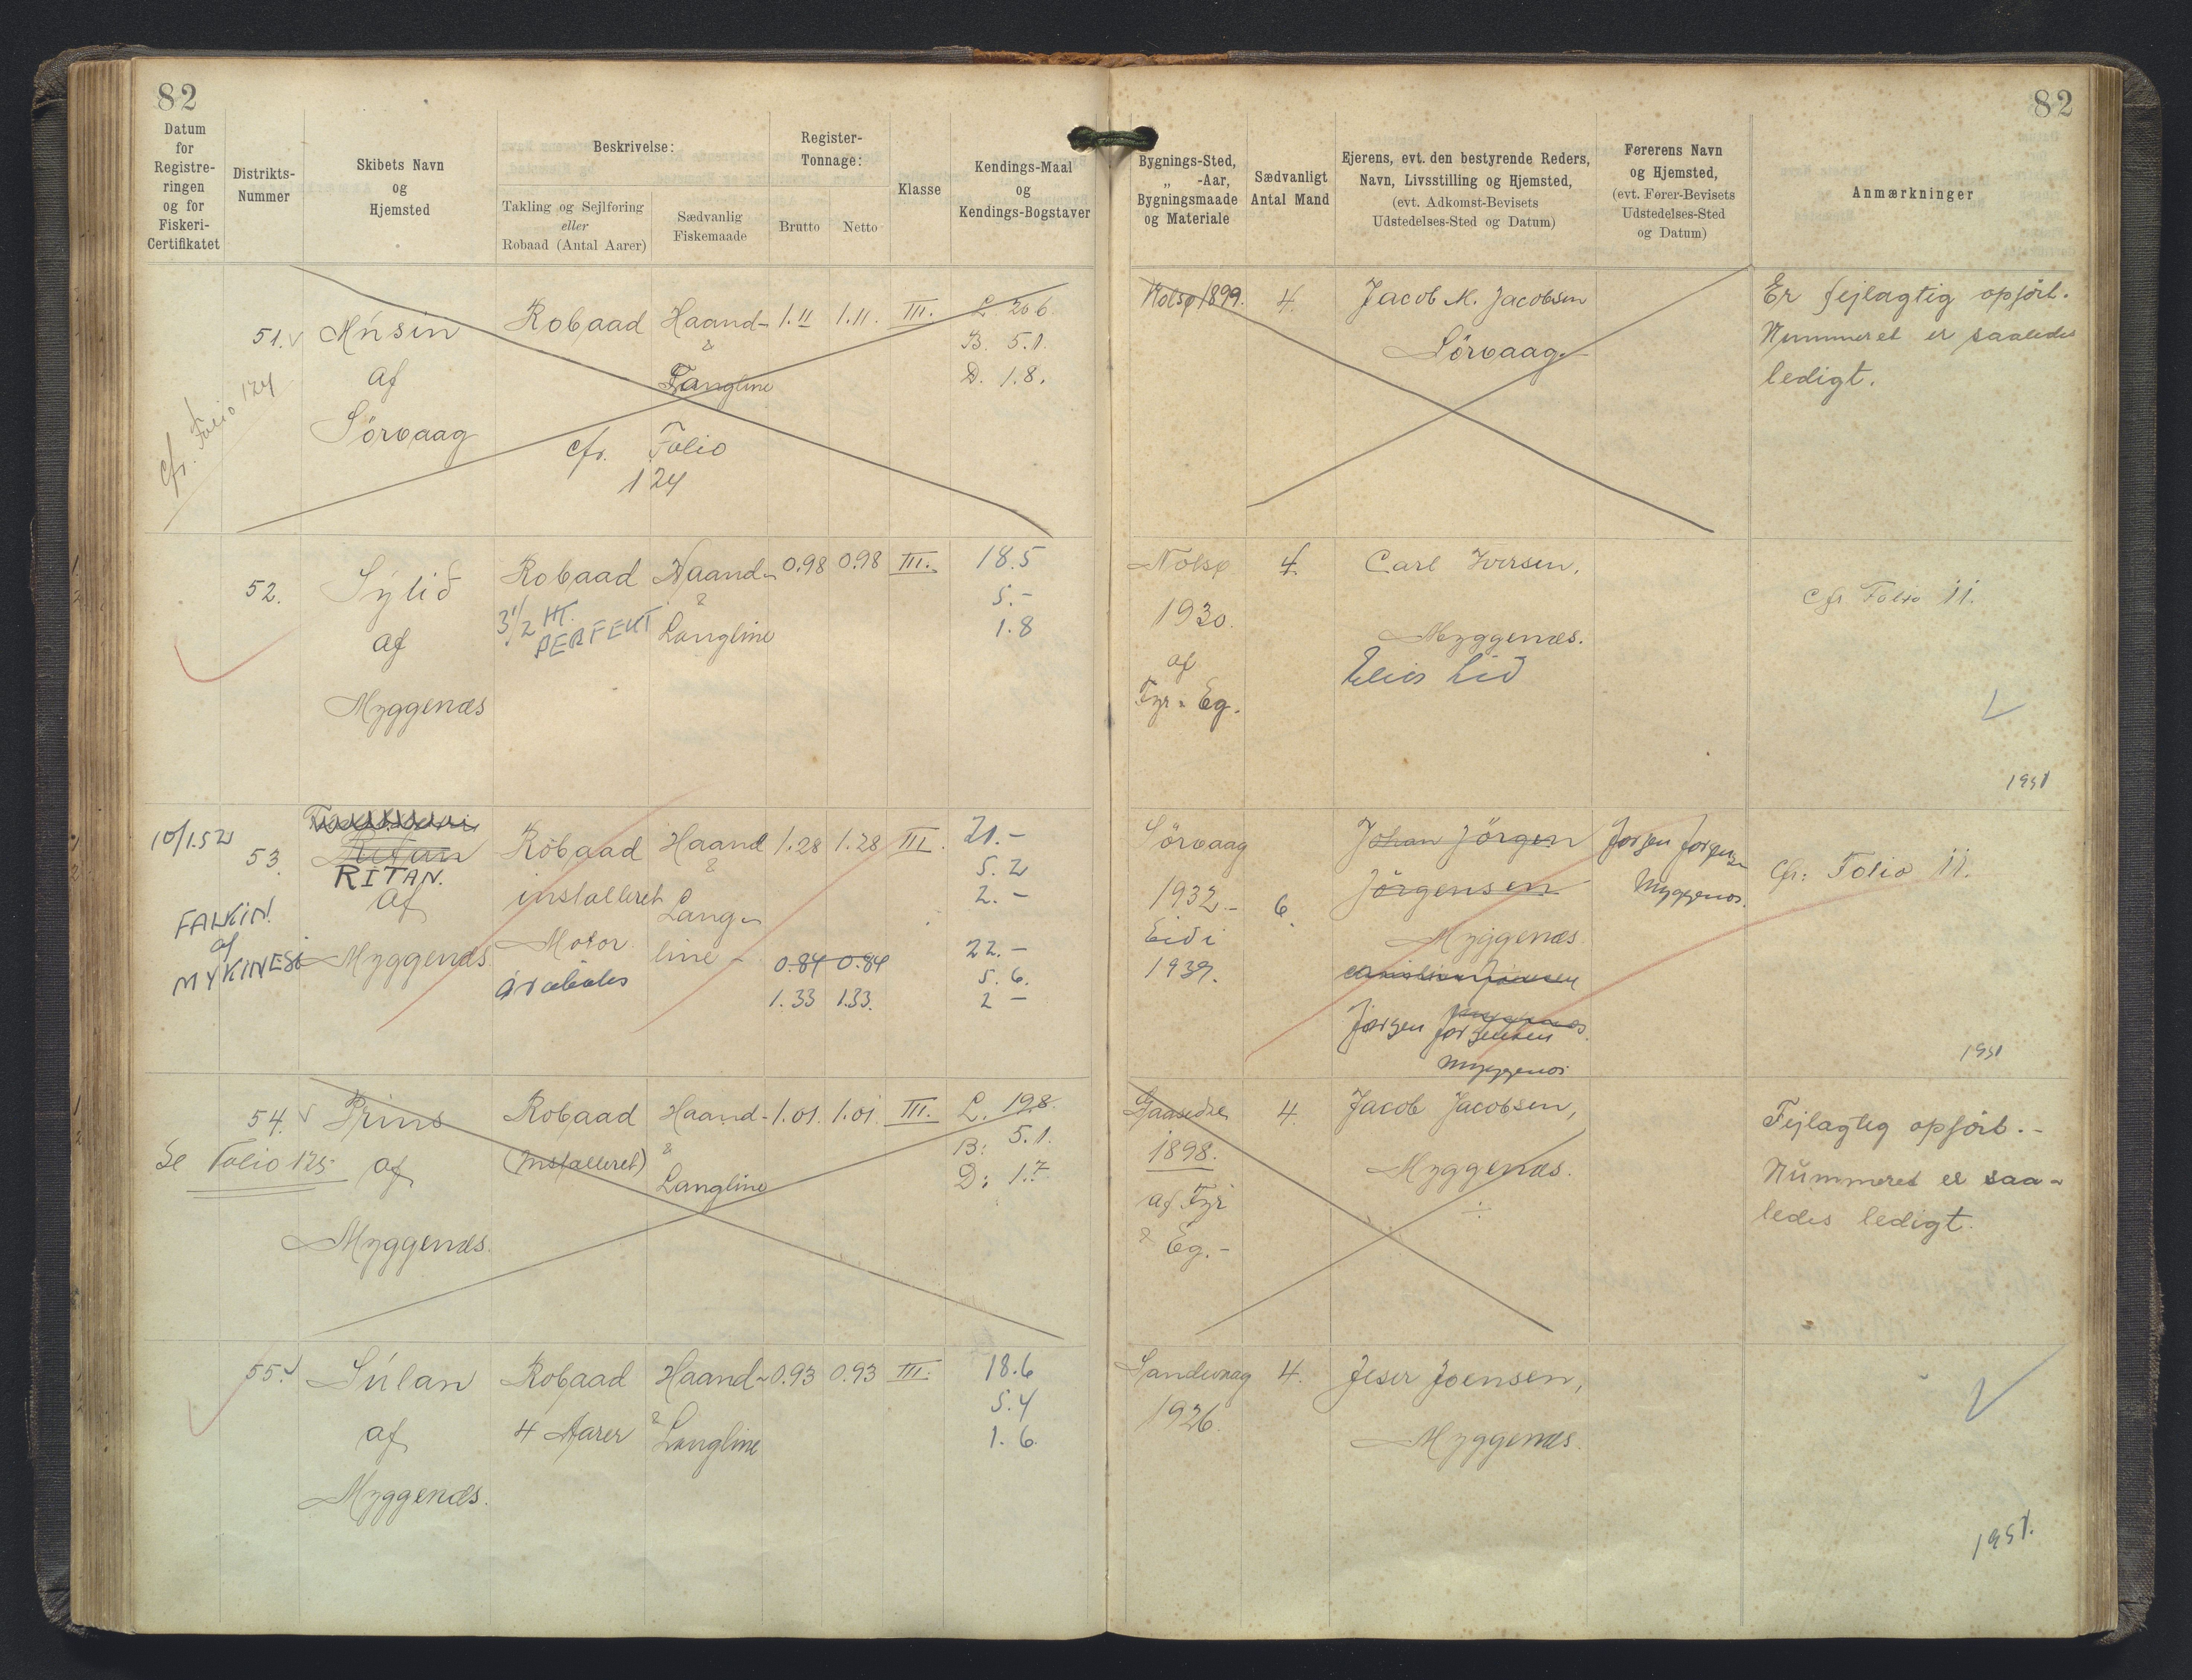 82
82
Datum
for
Registre-
ringen
og for
Fiskeri-
Certifikatet
Distrikts-
Nummer
Skibets Navn
og
Hjemsted
Beskrivelse:
Takling og Sejlføring
eller
Robaad (Antal Aarer)
Sædvanlig
Fiskemaade
Register-
Tonnage:
Brutto
Netto
Klasse
Kendings-Maal
og
Kendings-Bogstaver
Bygnings-Sted,
„ -Aar,
Bygningsmaade
og Materiale
Sædvanligt
Antal Mand
Ejerens, evt. den bestyrende Reders,
Navn, Livsstilling og Hjemsted,
(evt. Adkomst-Bevisets
Udstedelses-Sted og Datum)
Førerens Navn
og Hjemsted,
(evt. Fører-Bevisets
Udstedelses-Sted
og Datum)
Anmærkninger
cfr. Folio 124
51.
af
Sörvaag
Robaad
Haand-
&
Langline
cfr. Folio
124
1.11 1.11. III.
L. 20.6
B. 5.1.
D. 1.8.
Nolsø 1899.
4.
Jacob M. Jacobsen
Sörvaag.
Er fejlagtig opfört.
Nummeret er saaledes
ledigt.
52.
Sýlið
af
Myggenæs
Robaad
3 1/2 HT.
PERFEKT
Haand-
&
Langline
0.98 0.98 III.
18.5
5.-
1.8
Nolsø
1930.
af
Fyr & Eg.
4.
Carl Iversen,
Myggenæs.
Elias Lið
cfr Folio 11.
1951
10/1.52
53.
Ritan
RITAN.
af
Myggenæs
FALKIN.
af
MYKINESI
Robaad
installeret
Motor
Haand
&
Lang-
line -
1.28 1.28 III.
0.84 0.84
1.33 1.33.
21.-
5.2
2.-
22.-
5.6.
2 -
Sörvaag
1932.-
Eiði
1939.
6.
Johan Jörgen
Jörgensen
Myggenæs
Jørgen Jørgensen
Myggenæs
Jørgen Jørgensen
Myggenæs.
cfr: Folio 11.
1951
54.
Prins
af
Myggenæs.
Se Folio 125
Robaad
(Installeret)
Haand-
&
Langline
1.01. 1.01 III.
L. 19.8.
B: 5.1.
D: 1.7
Gaasedal
1898.
af Fyr
& Eg.-
4.
Jacob Jacobsen,
Myggenæs.
Fejlagtig opfört.-
Nummeret er saa-
ledes ledigt.
55.
Súlan
af
Myggenæs.
Robaad
4 Aarer
Haand-
&
Langline
0.93 0.93 III.
18.6
5.4
1.6.
Sandevaag
1926.
4.
Joensen,
Myggenæs.
1951.